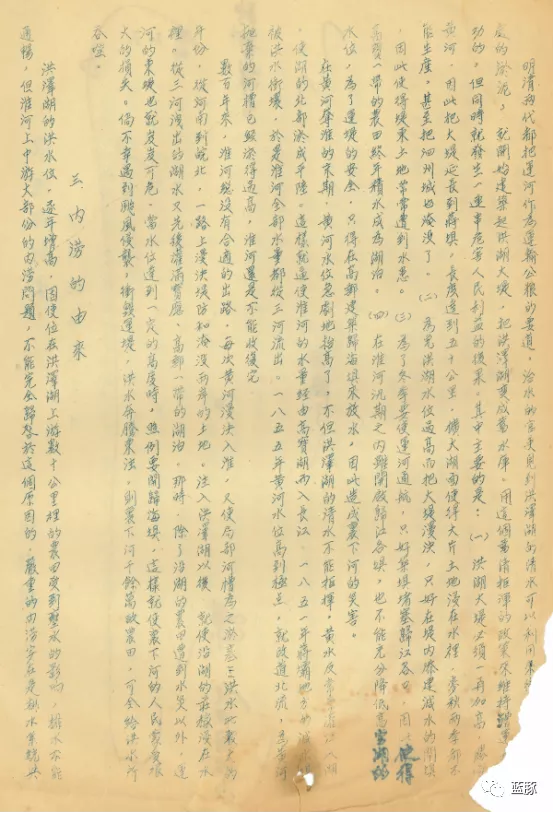 明清兩代都把運河作為運輸公糧的要道，治水的官吏見到洪澤湖的清水可以利用來
處的淤泥，就開始建築起洪湖大堤，把洪澤湖變成蓄水庫。用這個蓄清拒渾的政策來維持
功的。但同時就發生一連串危害人民利益的後果。其中主要的是：（一）洪湖大堤必須一再加高
黃河，因此把大堤延長到蔣壩，長度達到五十公里，擴大湖面使得大片土地浸在水裡，麥秋兩季都不
能生產。甚至把泗州城也淹沒了。（二）為免洪湖水位過高而把大堤漫決，只好在堤內修建減水的閘壩
，因此使得堤東土地常常遭到水患。（三）為了冬春要使運河通航，只好築壩堵塞歸江各口，因此使得
高寶一帶的農田終年積水成為湖泊。（四）在淮河汎期之內雖開啟歸江各壩，也不能充分降低高寶湖的
水位，為了運堤的安全，只得在高郵建築歸海壩來放水，因此造成裏下河的災害。
在黃河奪淮的末期，黃河水位急劇地抬高了，不但洪澤湖的清水不能拒渾，黃水反常常灌入湖
，使湖的北部淤成平陸。這樣就逼使淮河的水量經由高寶湖而入長江。一八五一年蔣壩地方的
被洪水衝壞，於是淮河全部水量都從三河流出。一八五五年黃河水位高到極點，就改道北流，
拋棄的河槽已經淤得過高，淮河還是不能收復它
數百年來，淮河既沒有合適的出路，每次黃河漫決入淮，又使局部河槽為之淤塞，洪水比較大的
年份，從河南到皖北，一路上漫決堤防和淹沒兩岸的土地。注入洪澤湖以後，就使沿湖的莊稼浸在水
裡。從三河洩出的湖水又先後灌滿寶應、高郵一帶的湖泊，那時，除了沿湖的農田遭到水災以外，運
河的東堤也就岌岌可危，當水位達到一定的高度時，照例要開歸海壩，這樣就使裏下河的人民蒙受很
大的損失。倘不幸遇到颱風侵襲，衝毀運堤，洪水奔騰東注，則裏下河千餘萬畝農田，可全給洪水所
吞噬。
三 內澇的由來
洪澤湖的洪水位，逐年增高，因使位在洪澤湖上游數十公里裡的農田受到壅水的影響，排水不能
通暢，但淮河上中游大部份的內澇問題，不能完全歸咎於這個原因的，嚴重的內澇實在是排水系統
蓝豚